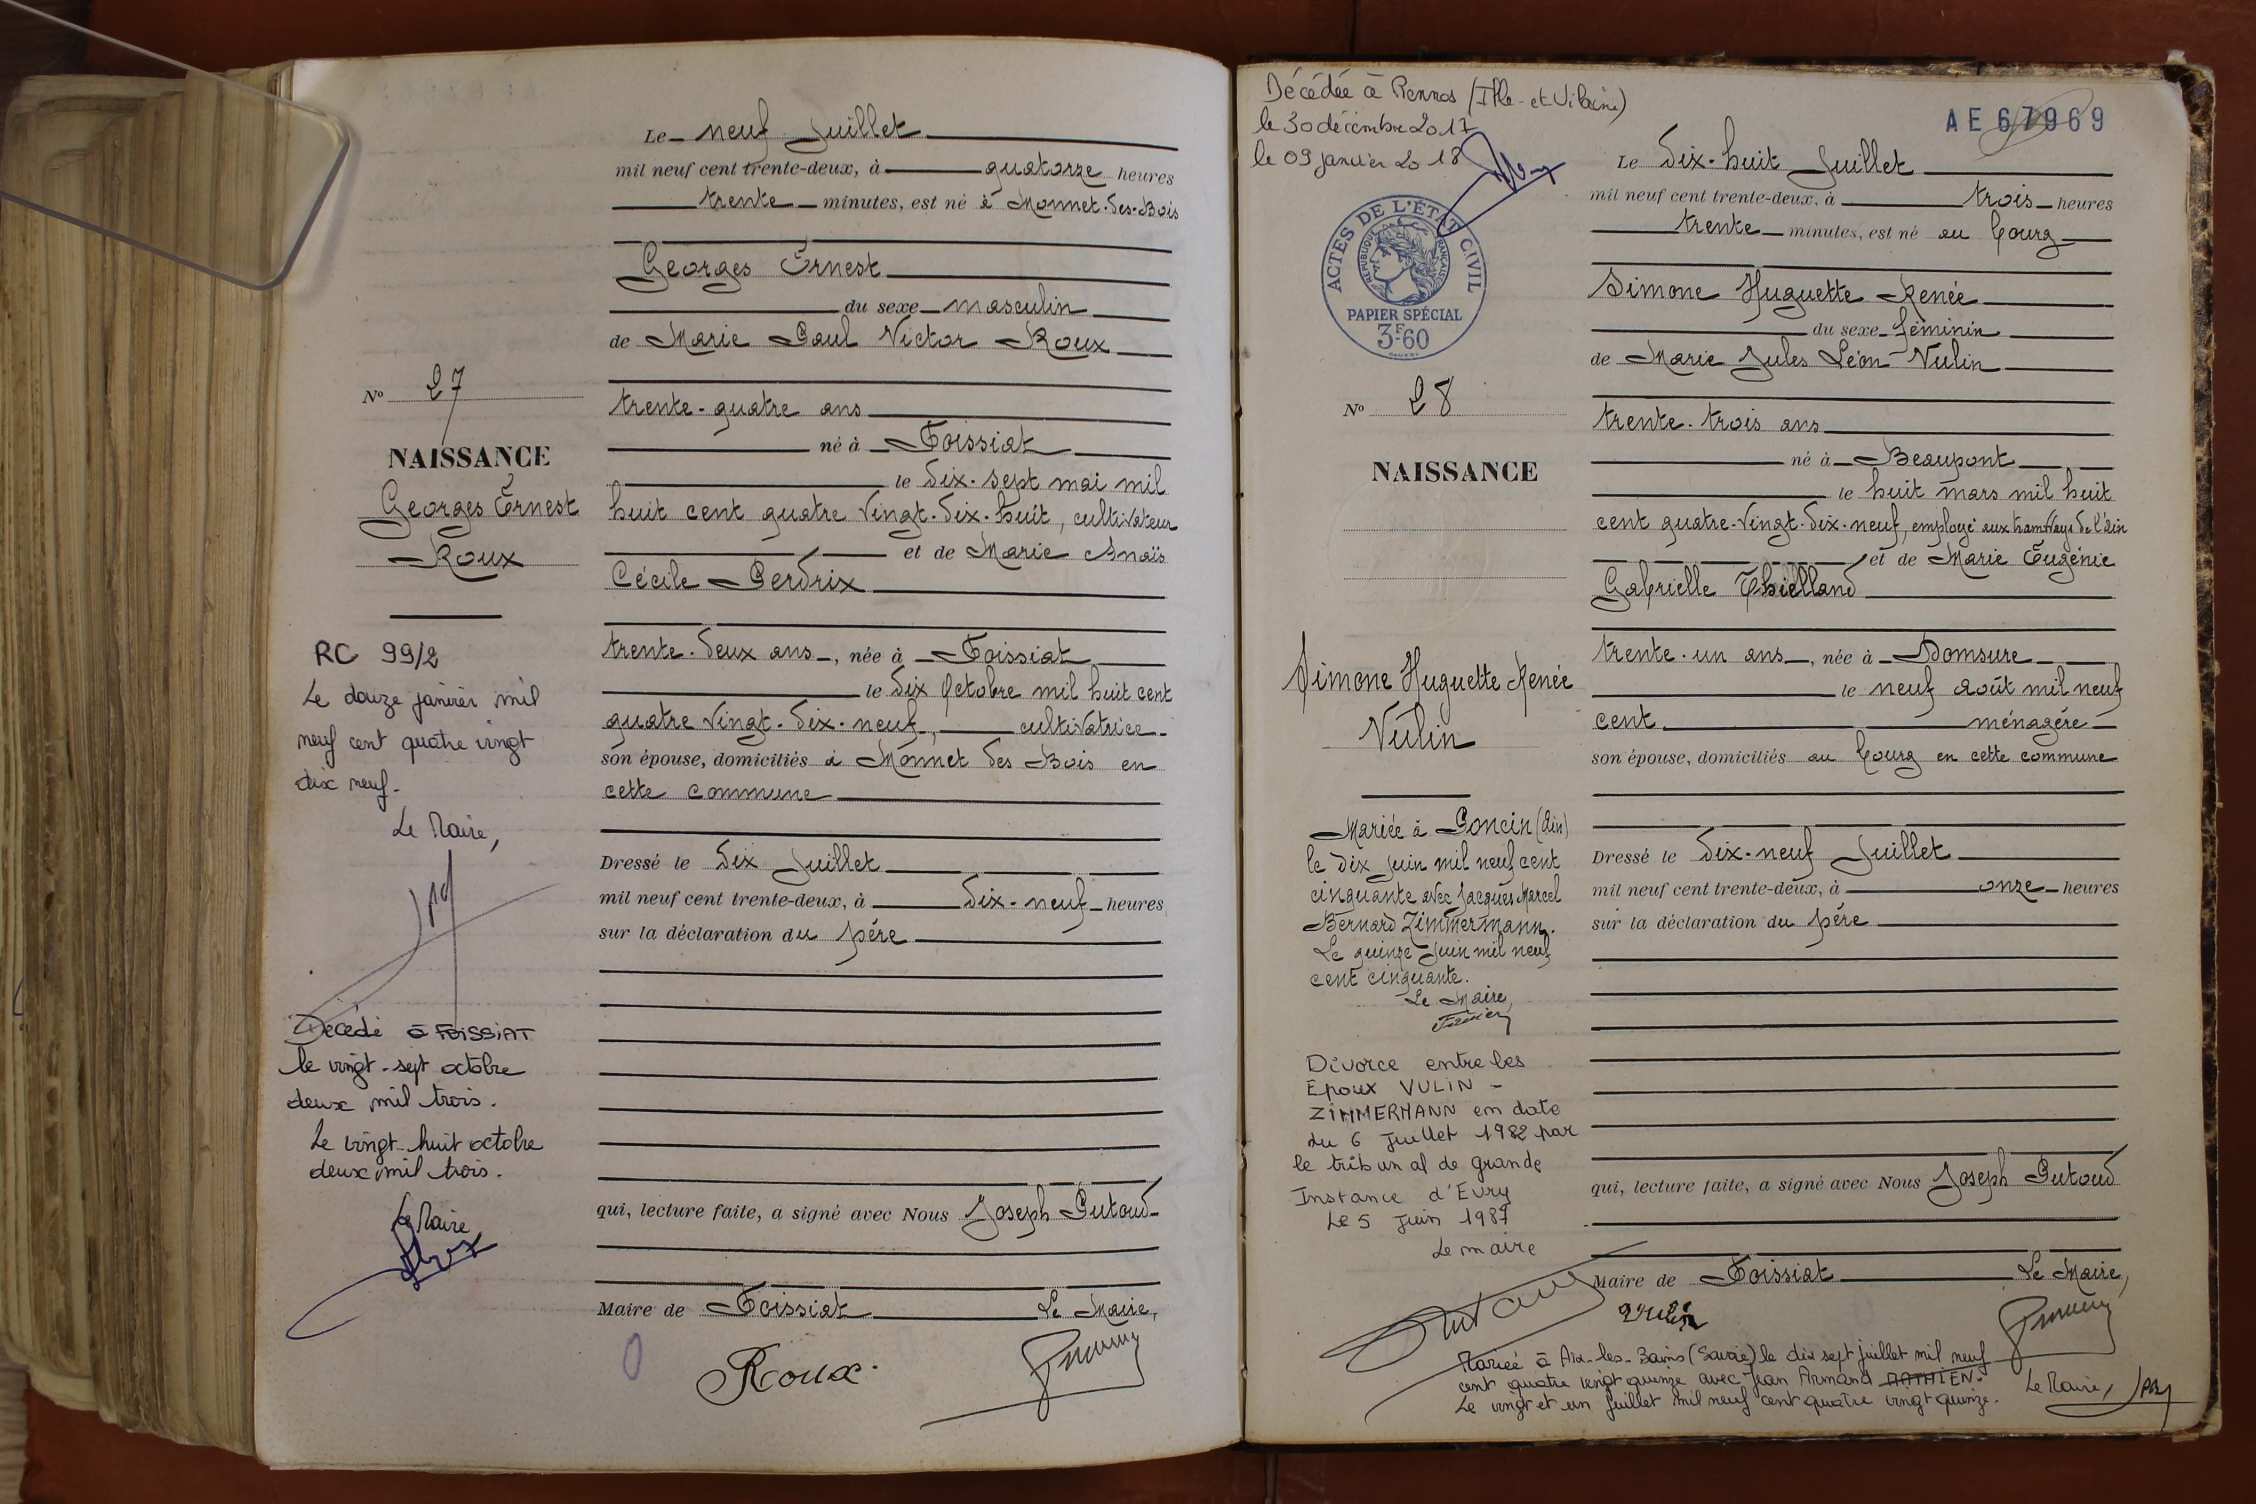 Le neuf Juillet
mil neuf cent trente-deux, à quatorze heures
trente minutes, est né à Monnet-des-Bois
Georges Ernest
du sexe masculin
de Marie Paul Victor Roux
trente-quatre ans
né à Foissiat
le dix-sept mai mil
huit cent quatre vingt-dix-huit, cultivateur
et de Marie Anaïs
Cécile Perdrix
trente-deux ans, née à Foissiat
le dix Octobre mil huit cent
quatre vingt-dix-neuf, cultivatrice
son épouse, domiciliés à Monnet des Bois en
cette commune
Dressé le dix Juillet
mil neuf cent trente-deux, à dix-neuf heures
sur la déclaration du père
qui, lecture faite, a signé avec Nous Joseph Putoud
Maire de Foissiat Le Maire,
Roux
No 27
NAISSANCE
Georges Ernest
Roux
RC 99/2
Le douze janvier mil
neuf cent quatre vingt
dix neuf.
Le Maire,
Décédé à FOISSIAT
le vingt-sept octobre
deux mil trois.
Le vingt-huit octobre
deux mil trois.
Le Maire
Décédée à Rennes (Ille-et-Vilaine)
le 30 décembre 2017
le 09 janvier 2018
AE 67969
ACTES DE L'ÉTAT CIVIL
RÉPUBLIQUE FRANÇAISE
PAPIER SPÉCIAL
3F60
Le dix-huit Juillet
mil neuf cent trente-deux, à trois heures
trente minutes, est né au bourg
Simone Huguette Renée
du sexe féminin
de Marie Jules Léon Vulin
trente-trois ans
né à Beaupont
le huit mars mil huit
cent quatre-vingt-dix-neuf, employé aux tramways de l'Ain
et de Marie Eugénie
Gabrielle Thielland
trente-un ans, née à Domsure
le neuf août mil neuf
cent ménagère
son épouse, domiciliés au bourg en cette commune
Dressé le dix-neuf Juillet
mil neuf cent trente-deux, à onze heures
sur la déclaration du père
qui, lecture faite, a signé avec Nous Joseph Putoud
Maire de Foissiat Le Maire,
Vulin
No 28
NAISSANCE
Simone Huguette Renée
Vulin
Mariée à Concin (Ain)
le dix juin mil neuf cent
cinquante avec Jacques Marcel
Bernard Zimmermann.
Le quinze Juin mil neuf
cent cinquante.
Le Maire,
Divorce entre les
Epoux VULIN -
ZIMMERMANN en date
du 6 juillet 1982 par
le tribunal de grande
Instance d'Evry
Le 5 juin 1987
Le maire
Mariée à Aix-les-Bains (Savoie) le dix sept juillet mil neuf
cent quatre vingt quinze avec Jean Armand MATHIEN.
Le vingt et un juillet mil neuf cent quatre vingt quinze.
Le Maire,